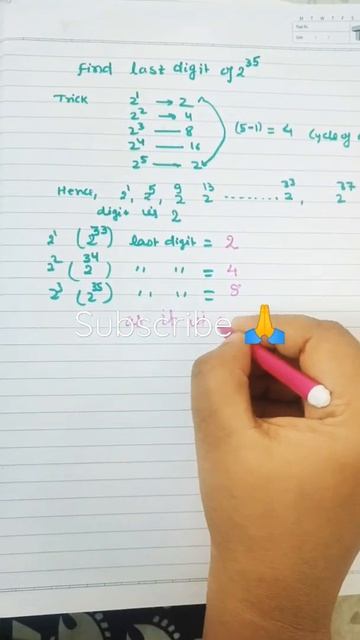 find last digit of 2^35
Trick 2^1 → 2
2^2 → 4
2^3 — 8
2^4 — 16
2^5 — 2
(5-1) = 4 Cycle of
Hence, 2^1, 2^5, 2^9, 2^13 ........ 2^33, 2^37
digit is 2
2^1 (2^33) last digit = 2
2^2 (2^34) " " = 4
2^3 (2^35) " " = 8
Subscribe 🙏